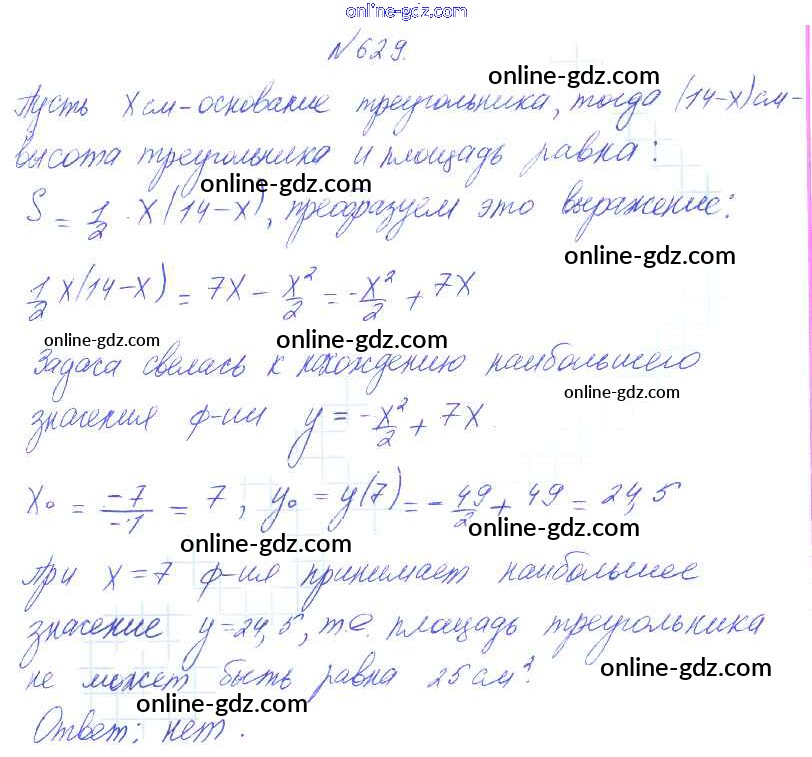 online-gdz.com
№629.
online-gdz.com
Пусть x см - основание треугольника, тогда (14-x) см -
высота треугольника и площадь равна:
online-gdz.com
S = 1/2 · x(14-x), преобразуем это выражение:
online-gdz.com
1/2 x(14-x) = 7x - x²/2 = -x²/2 + 7x
online-gdz.com
online-gdz.com
Задача свелась к нахождению наибольшего
online-gdz.com
значения ф-ии y = -x²/2 + 7x.
x₀ = -7/-1 = 7, y₀ = y(7) = -49/2 + 49 = 24,5
online-gdz.com
online-gdz.com
При x = 7 ф-ия принимает наибольшее
значение y = 24,5, т.е. площадь треугольника
online-gdz.com
не может быть равна 25 см².
online-gdz.com
Ответ: нет.
online-gdz.com